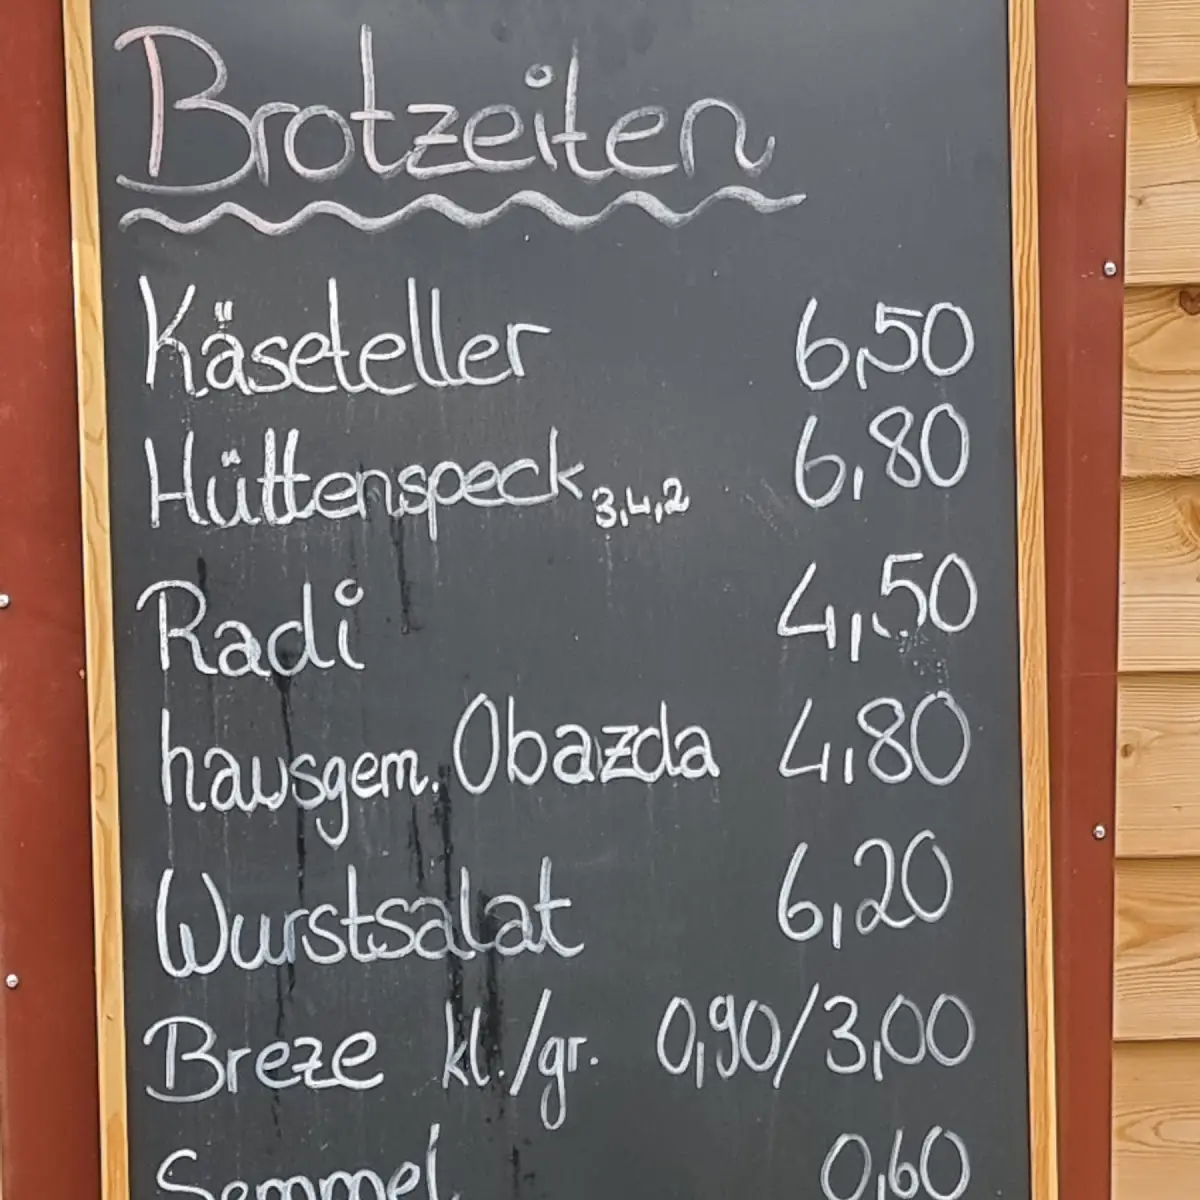 Brotzeiten
Käseteller 6,50
Hüttenspeck 3,4,2 6,80
Radi 4,50
hausgem. Obazda 4,80
Wurstsalat 6,20
Breze kl./gr. 0,90/3,00
Semmel 0,60